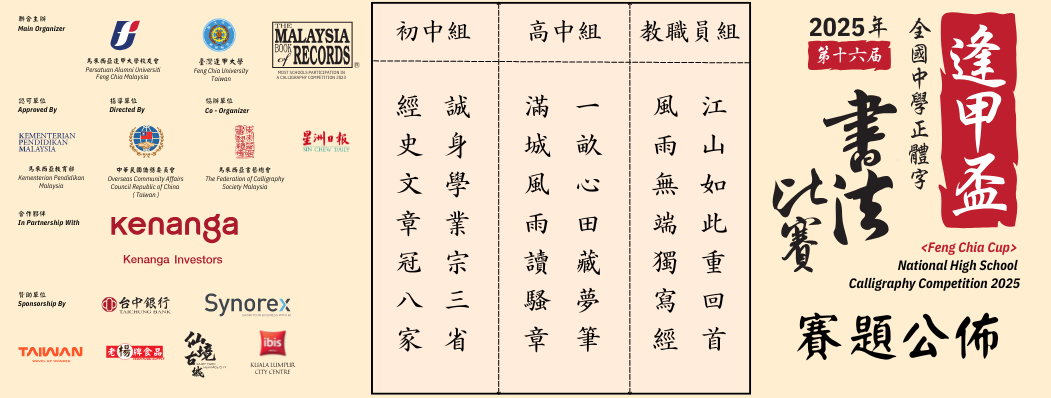 聯合主辦
Main Organizer
馬來西亞逢甲大學校友會
Persatuan Alumni Universiti
Feng Chia Malaysia
臺灣逢甲大學
Feng Chia University
Taiwan
THE
MALAYSIA
BOOK
OF
RECORDS
MOST SCHOOLS PARTICIPATION IN
A CALLIGRAPHY COMPETITION 2023
認可單位
Approved By
指導單位
Directed By
協辦單位
Co - Organizer
KEMENTERIAN
PENDIDIKAN
MALAYSIA
馬來西亞教育部
Kementerian Pendidikan
Malaysia
中華民國僑務委員會
Overseas Community Affairs
Council Republic of China
( Taiwan )
馬來西亞書藝總會
The Federation of Calligraphy
Society Malaysia
星洲日报
SIN CHEW DAILY
合作夥伴
In Partnership With
kenanga
Kenanga Investors
贊助單位
Sponsorship By
台中銀行
TAICHUNG BANK
Synorex
TAIWAN
WAVES OF WONDER
老楊牌食品
仙境台城
ibis
KUALA LUMPUR
CITY CENTRE
初中組
誠身學業宗三省
經史文章冠八家
高中組
一畝心田藏夢筆
滿城風雨讀騷章
教職員組
江山如此重回首
風雨無端獨寫經
2025年
第十六届
全國中學正體字
逢甲盃
書法
比賽
<Feng Chia Cup>
National High School
Calligraphy Competition 2025
賽題公佈